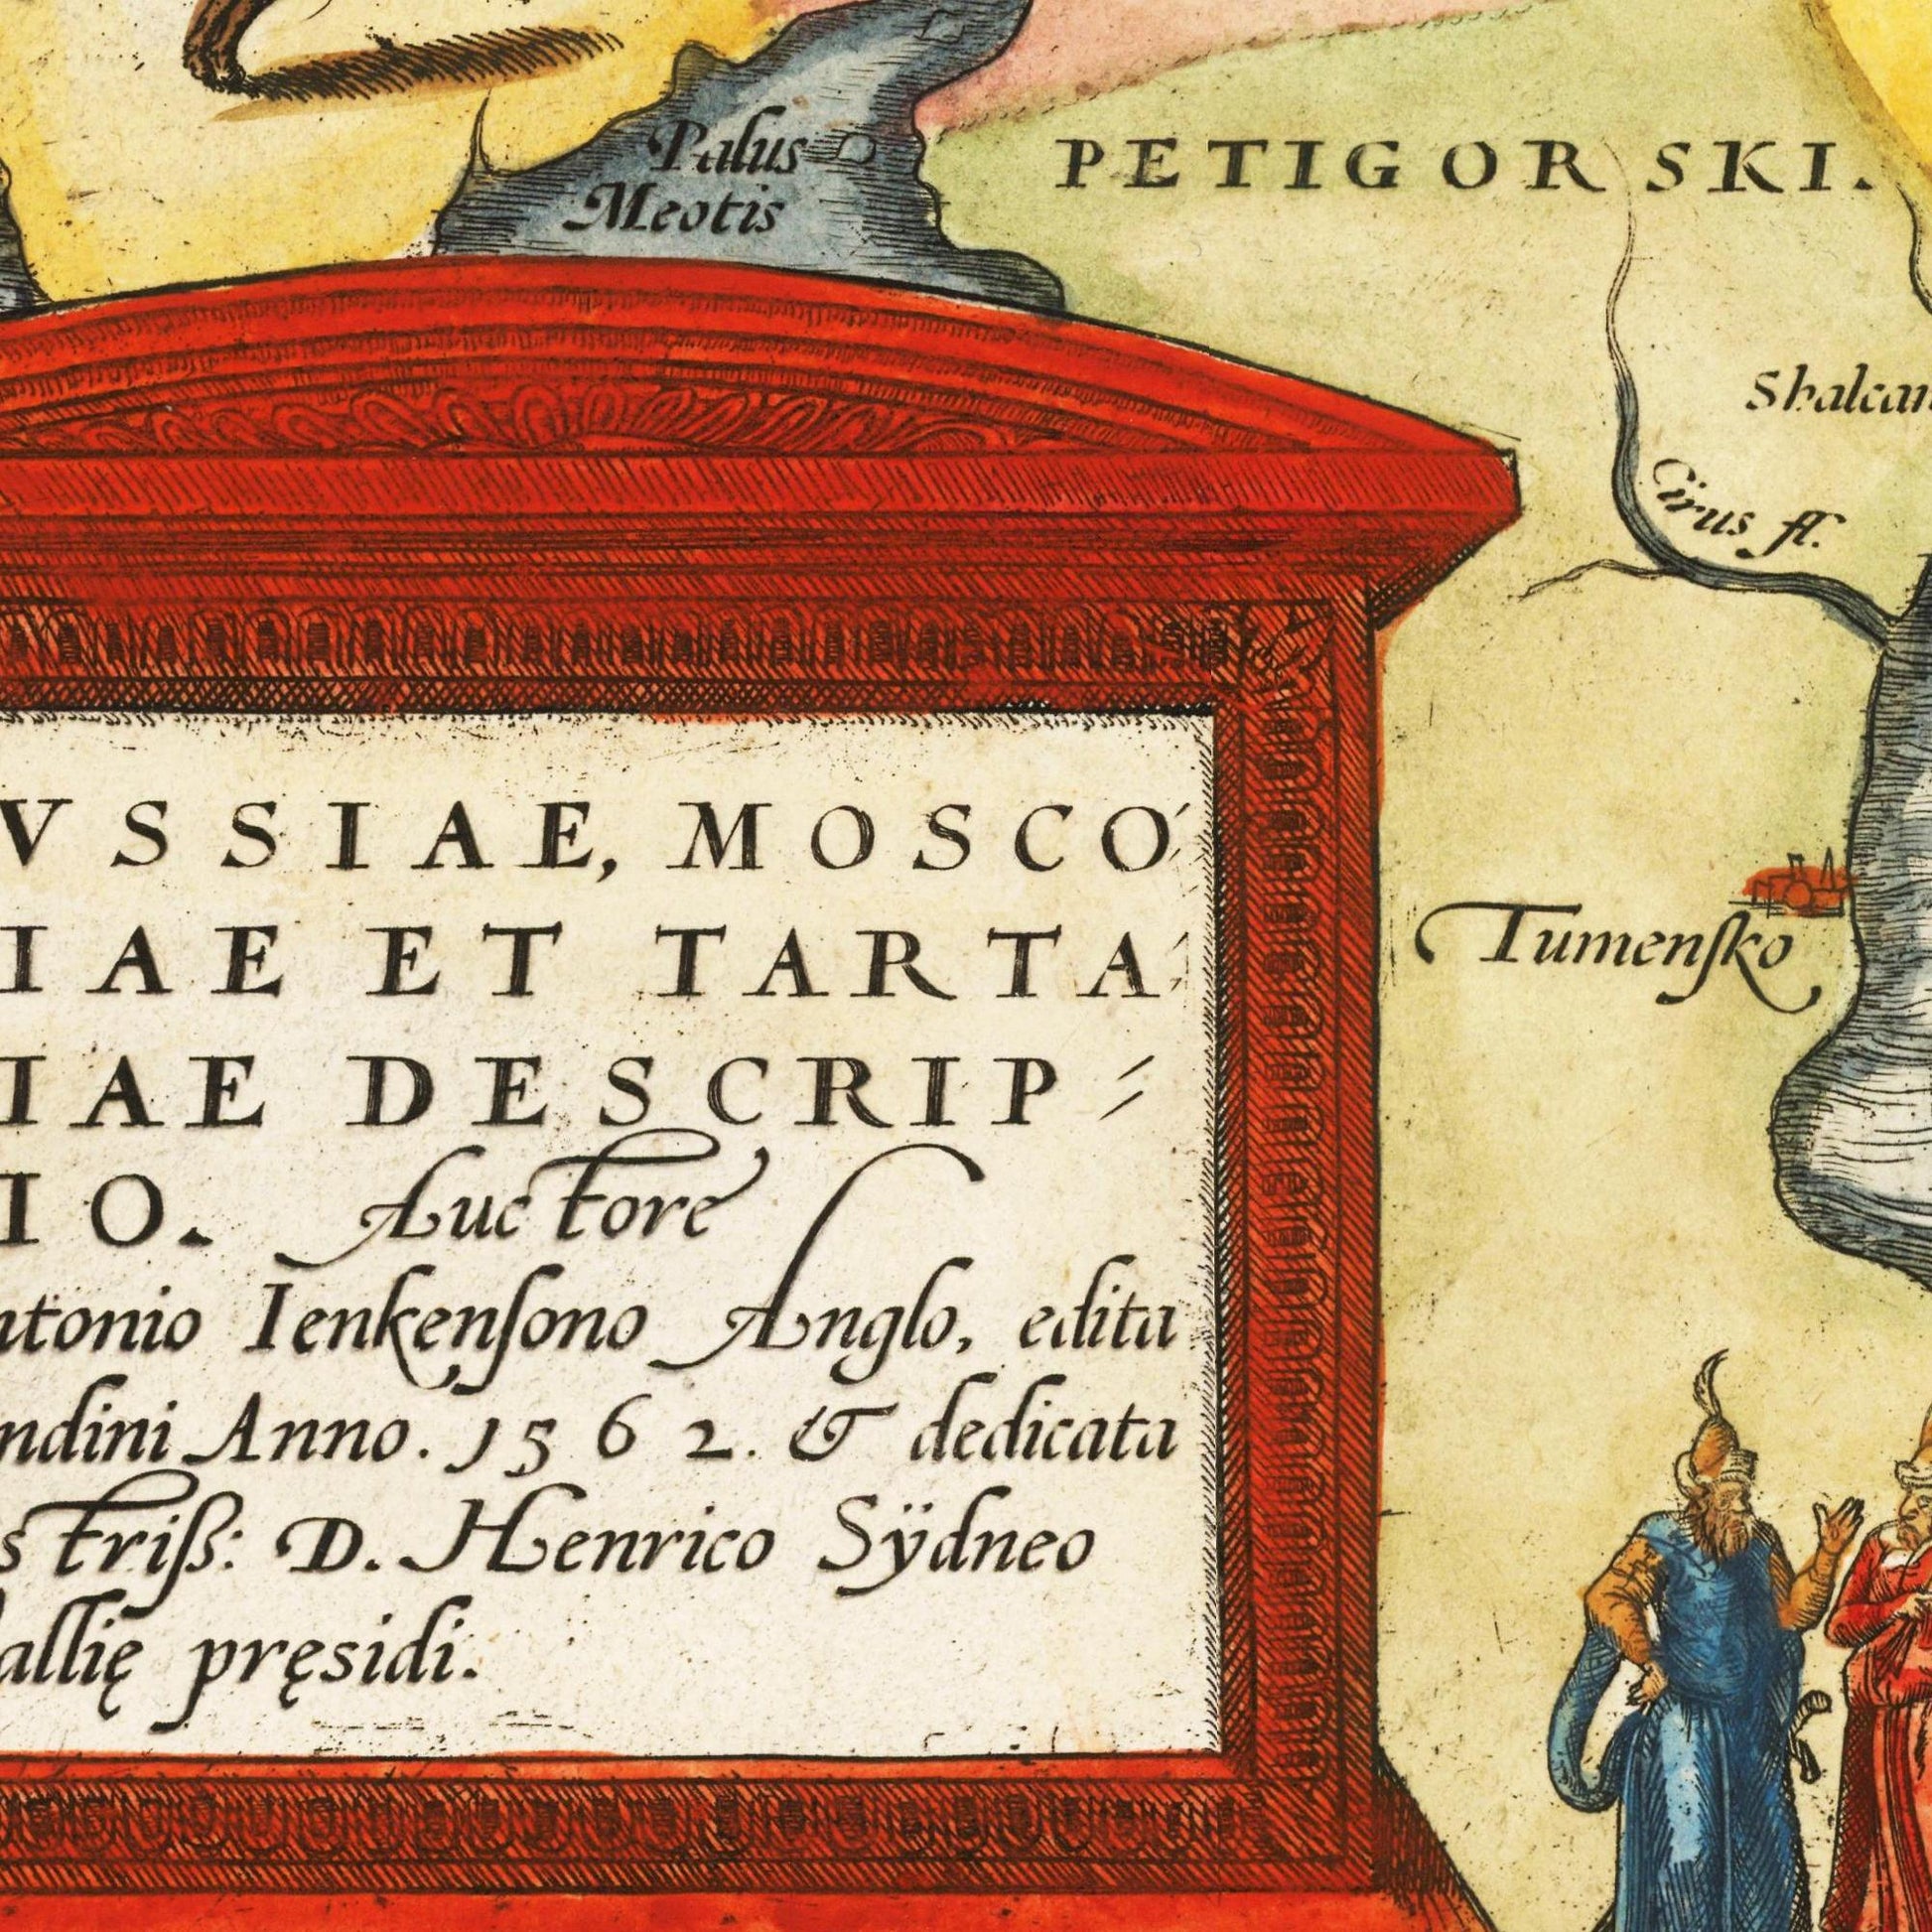 Palus
Meotis
PETIGORSKI.
Shalcan
Cirus fl.
Tumenſko
VSSIAE, MOSCO
IAE ET TARTA
IAE DESCRIP
IO. Auctore
ntonio Ienkenſono Anglo, edita
ndini Anno. 1562. & dedicata
striß: D. Henrico Sÿdneo
allię pręsidi.